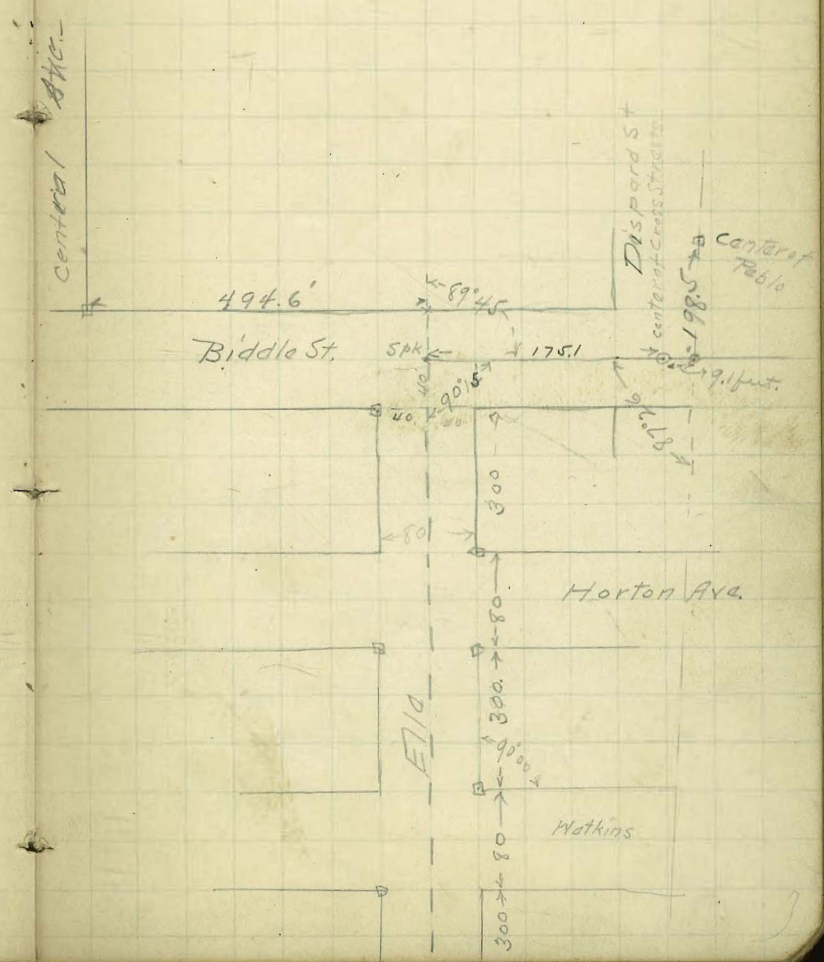 Central Ave.
Dispard St
center of Cross Streets
Center of
Pablo
198.5
494.6'
89° 45
Biddle St.
Spk
175.1
9.1 feet.
40
90° 15
40
87° 26
300
80
Horton Ave.
80
300.
Ella
90° 00
Watkins
80
300